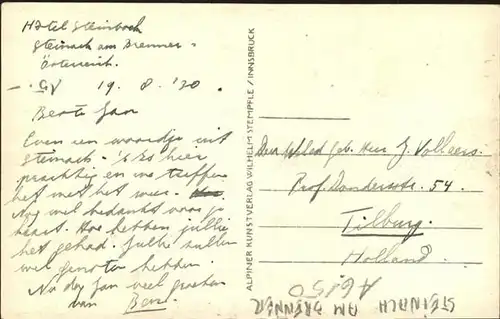 Hotel Steinbock
Steinach am Brenner -
Österreich.
19. 8. '30
Beste Jan
Even een woordje uit
Steinach. 't Is hier
prachtig en we treffen
het met het weer.
Nog wel bedankt voor je
kaart. Hoe hebben jullie
het gehad. Jullie zullen
wel genoten hebben.
Nu dag Jan veel groeten
van
ALPINER KUNSTVERLAG WILHELM STEMPFLE / INNSBRUCK
Den Heer J. Vollaers
Prof. Dondersstr. 54.
Tilburg.
Holland
A6150
STEINACH AM BRENNER